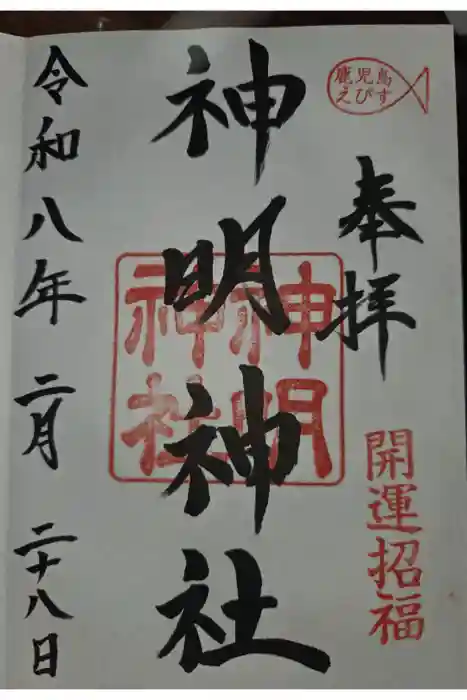 鹿児島
えびす
奉拝
開運招福
神明神社
神明
神社
令和八年二月二十八日